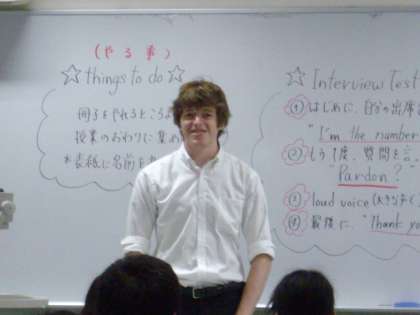 (やる事)
☆things to do☆
冊子をやれるところま
授業のおわりに集め
*表紙に名前を
☆Interview Test
① はじめに、自分の出席
"I'm the number
② もう1度、質問を言
"Pardon?"
③ loud voice (大きな
④ 最後に、"Thank yo